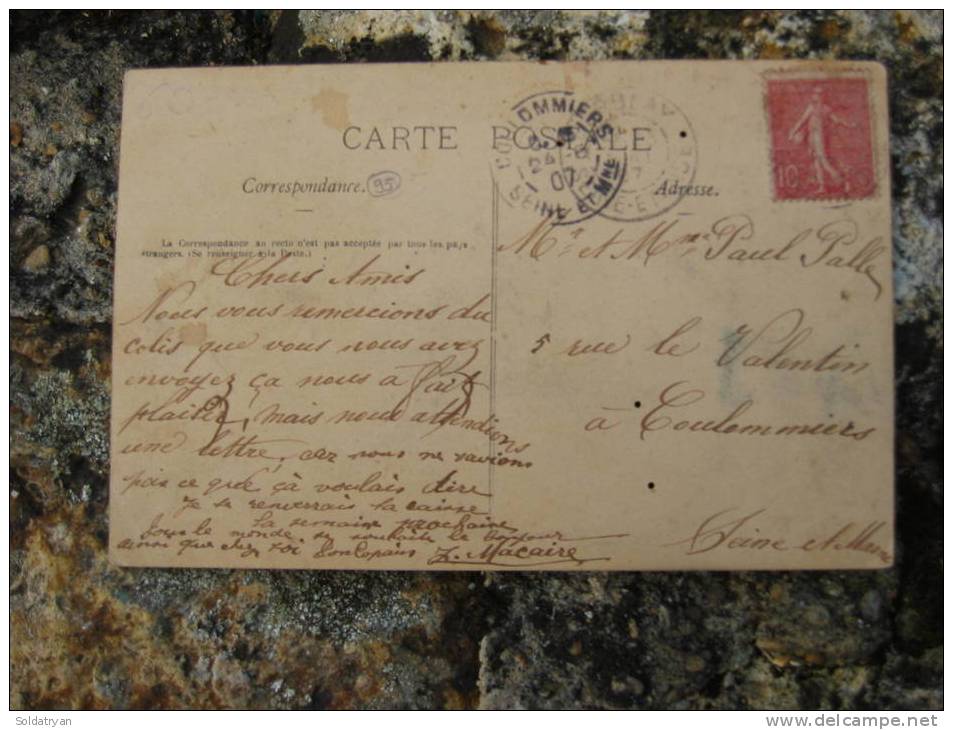 CARTE POSTALE
COULOMMIERS
07
SEINE ET Mne
10
Correspondance.
95
Adresse.
La Correspondance au recto n'est pas acceptée par tous les pays
étrangers. (Se renseigner à la Poste.)
Chers Amis
Nous vous remercions du
colis que vous nous avez
envoyez ça nous a fait
plaisir, mais nous attendions
une lettre, car nous ne savions
pas ce que çà voulais dire
Je te renverrais la caisse
la semaine prochaine
tout le monde te souhaite le bonjour
ainsi que chez toi. Ton Copain Z. Macaire
Mr et Mme Paul Palle
5 rue le Valentin
à Coulommiers
Seine et Marne
Soldatryan
www.delcampe.net